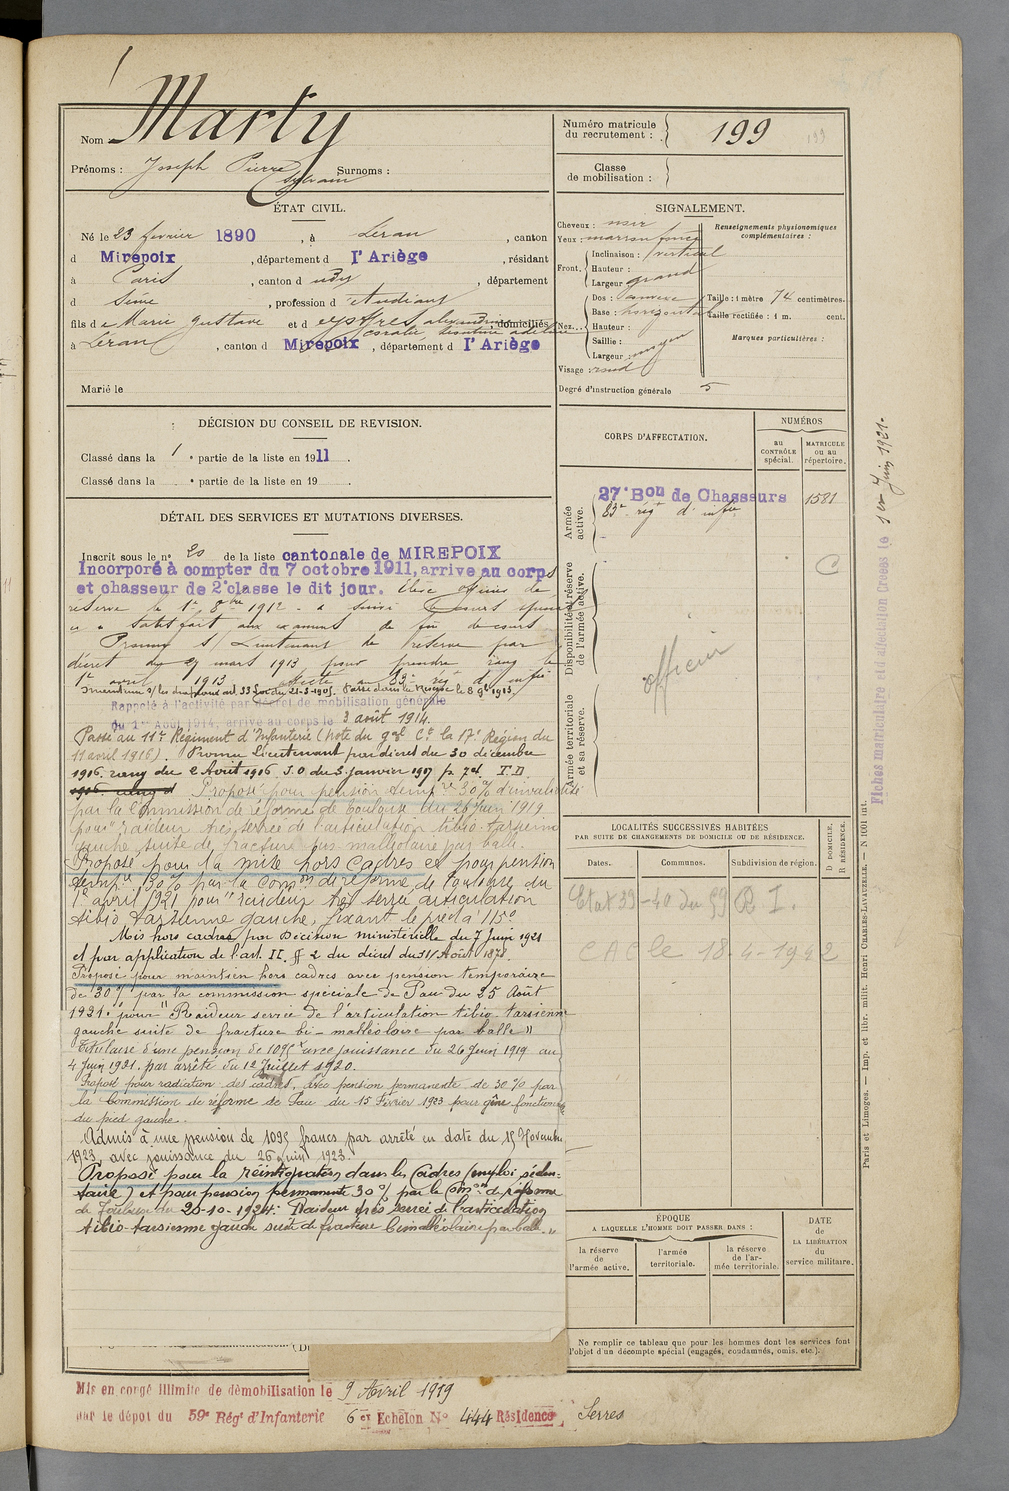 Nom : Marty
Prénoms : Joseph Pierre Sylvain Surnoms :
Numéro matricule du recrutement : 199
199
Classe de mobilisation :
ÉTAT CIVIL.
Né le 23 février 1890, à Léran, canton
d Mirepoix, département d l'Ariège, résidant
à Paris, canton d udr, département
d Seine, profession d étudiant
fils de Marie Gustave et d eyssfres alexandrine, domiciliés
à Léran, canton d Mirepoix, département d l'Ariège
Marié le
SIGNALEMENT.
Cheveux : noir
Yeux : marron foncé
Front. Inclinaison : vertical
Hauteur :
Largeur grand
Nez. Dos :
Base : horizontal
Hauteur :
Saillie :
Largeur : moyen
Visage : rond
Renseignements physionomiques complémentaires :
Taille : 1 mètre 74 centimètres.
Taille rectifiée : 1 m. cent.
Marques particulières :
Degré d'instruction générale 5
DÉCISION DU CONSEIL DE REVISION.
Classé dans la 1 e partie de la liste en 1911.
Classé dans la e partie de la liste en 19 .
CORPS D'AFFECTATION.
NUMÉROS
au CONTRÔLE spécial.
MATRICULE ou au répertoire.
Armée active.
27e Bon de Chasseurs 1581
83e régt d'infie
Disponibilité et réserve de l'armée active.
C
officier
Armée territoriale et sa réserve.
DÉTAIL DES SERVICES ET MUTATIONS DIVERSES.
Inscrit sous le n° 20 de la liste cantonale de MIREPOIX
Incorporé à compter du 7 octobre 1911, arrive au corps
et chasseur de 2e classe le dit jour. Elève officier de
réserve le 1er 8bre 1912. a suivi cours
et a satisfait aux examens de fin de cours
Promu s/ Lieutenant de réserve par
décret du 27 mars 1913 pour prendre rang le
1er avril 1913. Affecté au 83e régt d'infie
Rappelé à l'activité par décret de mobilisation générale
du 1er Août 1914, arrivé au corps le 3 août 1914.
Passé au 11e Régiment d'Infanterie (Note du gal Ct la 17e Région du
11 avril 1916). Promu Lieutenant par décret du 30 décembre
1916. rang du 2 Avril 1916. J.O. du 3 janvier 1917 p. 74. T.D.
Proposé pour pension tempre 30% d'invalidité
par la Commission de réforme de Toulouse du 26 Juin 1919
pour raideur très serrée de l'articulation tibio-tarsienne
gauche suite de fracture bis-malléolaire par balle.
Proposé pour la mise hors cadres et pour pension
tempre 30% par la Comon de réforme de Toulouse du
1er avril 1921 pour "raideur très serrée articulation
tibio tarsienne gauche, fixant le pied à 115°
Mis hors cadres par Décision ministérielle du 7 Juin 1921
et par application de l'art. II. § 2 du décret du 31 Août 1878.
Proposé pour maintien hors cadres avec pension temporaire
de 30% par la commission spéciale de Pau du 25 Août
1921. pour "Raideur serrée de l'articulation tibio-tarsienne
gauche suite de fracture bi-malléolaire par balle"
Titulaire d'une pension de 1095f avec jouissance du 26 Juin 1919 au
4 Juin 1921. par arrêté du 1er Juillet 1920.
Proposé pour radiation des cadres, avec pension permanente de 30% par
la Commission de réforme de Pau du 15 Février 1923 pour gêne fonctionnelle
du pied gauche.
Admis à une pension de 1095 francs par arrêté en date du 15 Novembre
1923, avec jouissance du 26 juin 1923.
Proposé pour la réintégration dans les Cadres (emploi séden-
taire) et pour pension permanente 30% par la Comon de réforme
de Toulouse du 20-10-1924: Raideur très serrée de l'articulation
tibio-tarsienne gauche suite de fracture bimalléolaire par balle."
LOCALITÉS SUCCESSIVES HABITÉES
PAR SUITE DE CHANGEMENTS DE DOMICILE OU DE RÉSIDENCE.
Dates. Communes. Subdivision de région. D DOMICILE. R RÉSIDENCE.
Etat 39-40 du 59 R I.
CAC le 18-4-1942
ÉPOQUE
A LAQUELLE L'HOMME DOIT PASSER DANS :
la réserve de l'armée active.
l'armée territoriale.
la réserve de l'armée territoriale.
DATE de LA LIBÉRATION du service militaire.
Ne remplir ce tableau que pour les hommes dont les services font
l'objet d'un décompte spécial (engagés, condamnés, omis, etc.).
Mis en congé illimité de démobilisation le 9 Avril 1919
par le dépôt du 59e Régt d'Infanterie 6e Echelon N° 444 Résidence Serres
Fiches matriculaire et d'affectation créées le 1er Juin 1921.
Paris et Limoges. — Imp. et libr. milit. Henri CHARLES-LAVAUZELLE. — N 1001 int.